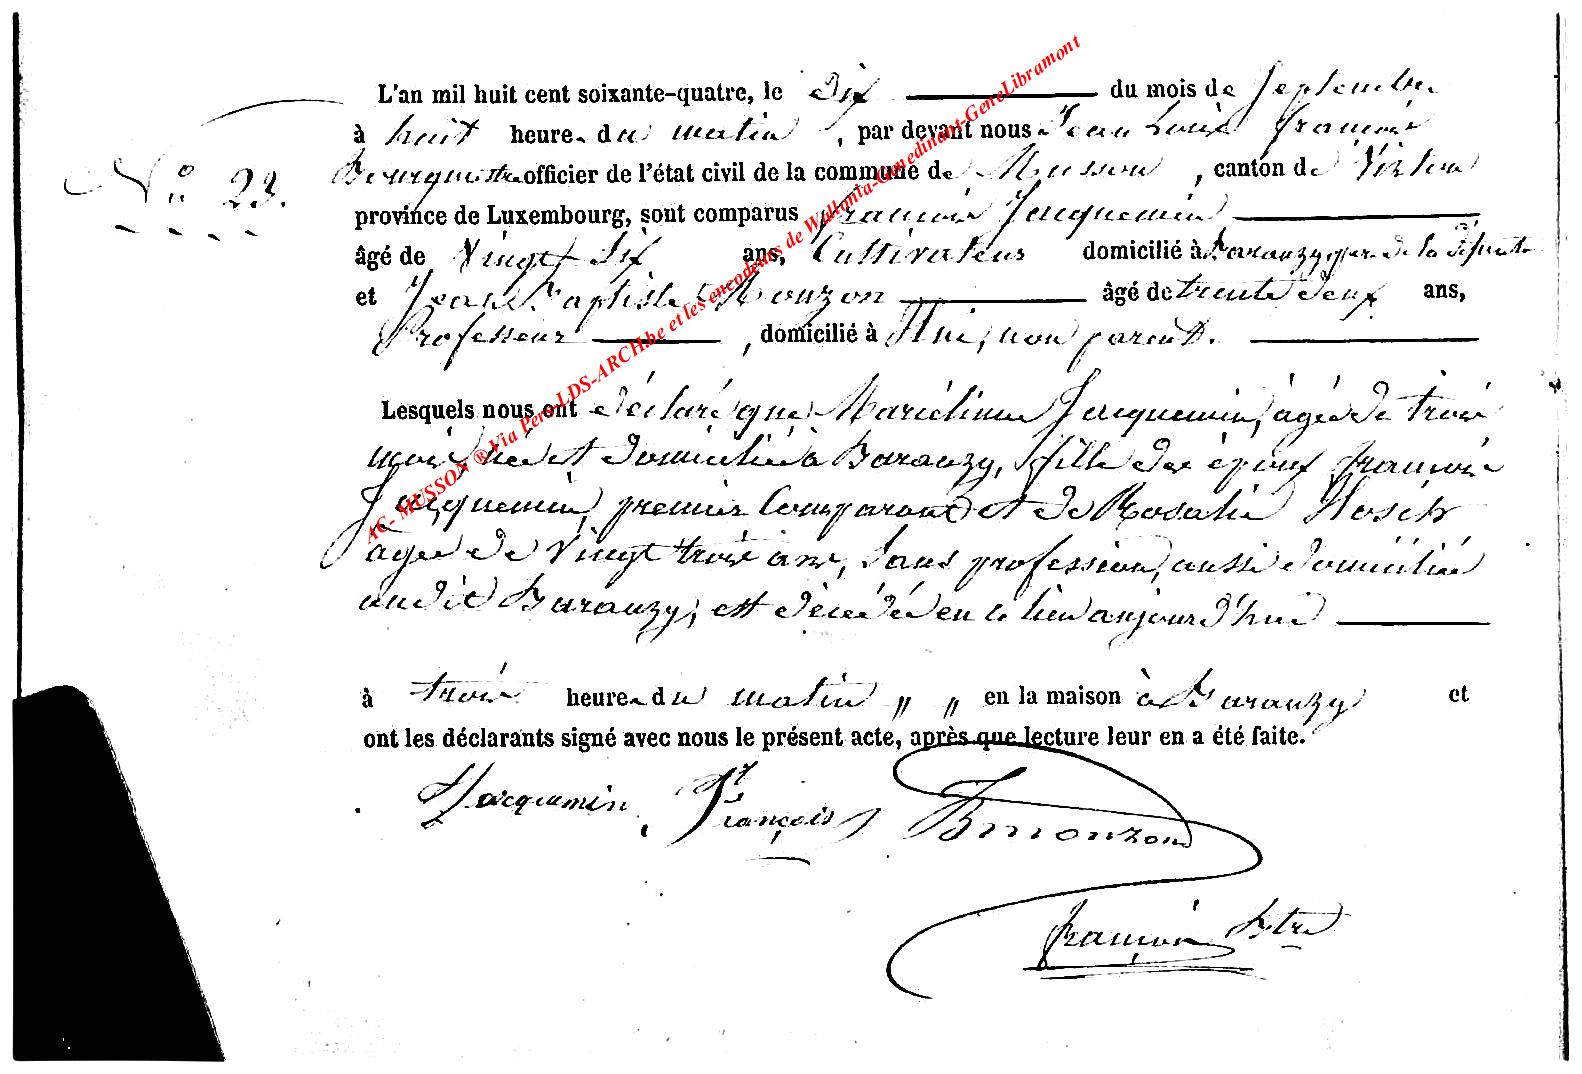 L'an mil huit cent soixante-quatre, le dix du mois de Septembre
à huit heure du matin, par devant nous Jean Louis François
N° 23. Bourgmestre officier de l'état civil de la commune de Musson, canton de Virton
province de Luxembourg, sont comparus François Jacquemin
âgé de Vingt dix ans, Cultivateur domicilié à Baranzy, père de la défunte
et Jean Baptiste Monzon âgé de trente deux ans,
Professeur, domicilié à non parent.
Lesquels nous ont déclaré que Marie Jacquemin, âgée de trois
mois née et domiciliée à Baranzy, fille des époux François
Jacquemin, premier Comparant et de Rosalie
âgée de Vingt trois ans, Sans profession, aussi domiciliée
audit Baranzy, est décédée en ce lieu aujourd'hui
à trois heure du matin " " en la maison à Baranzy et
ont les déclarants signé avec nous le présent acte, après que lecture leur en a été faite.
Jacquemin, François JBmonzon
François Btre
AC- MUSSON ® Via Pers-LDS-ARCH.be et les encodeurs de Wallonia-Genedinant-GeneLibramont